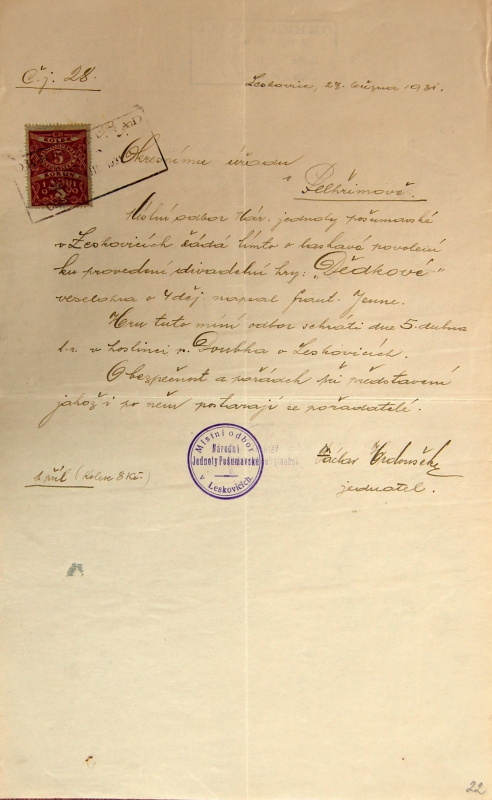 Č. j. 28.
Leskovice, 27. března 1931.
KOLEK
5
KORUN
Okresnímu úřadu
v Pelhřimově.
Místní odbor Nár. jednoty pošumavské
v Leskovicích žádá tímto o laskavé povolení
ku provedení divadelní hry: „Dědkové"
veselohra o 4 děj. napsal Frant. Jenne.
Hru tuto míní odbor sehráti dne 5. dubna
t. r. v hostinci p. Doubka v Leskovicích.
O bezpečnost a pořádek při představení
jakož i po něm postarají se pořadatelé.
Místní odbor
Národní
Jednoty Pošumavské
v Leskovicích.
Václav
jednatel.
1 příl. (Kolek 8 Kč.)
22